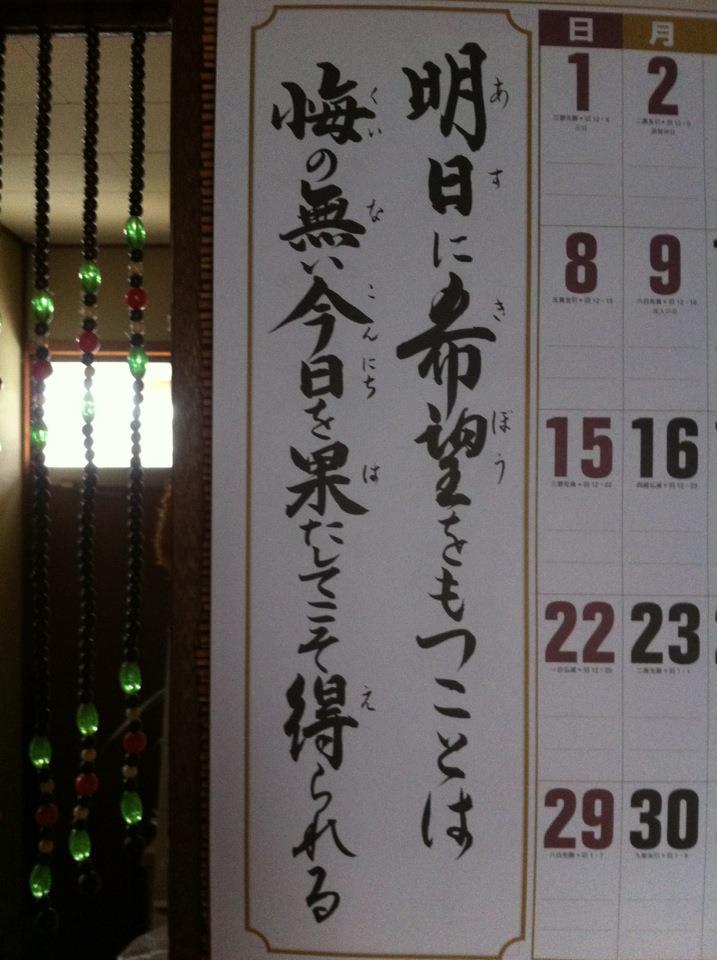 明日に希望をもつことは
あす きぼう
悔の無い今日を果たしてこそ得られる
くい な こんにち は え
日 月
1 2
8 9
15 16
22 23
29 30